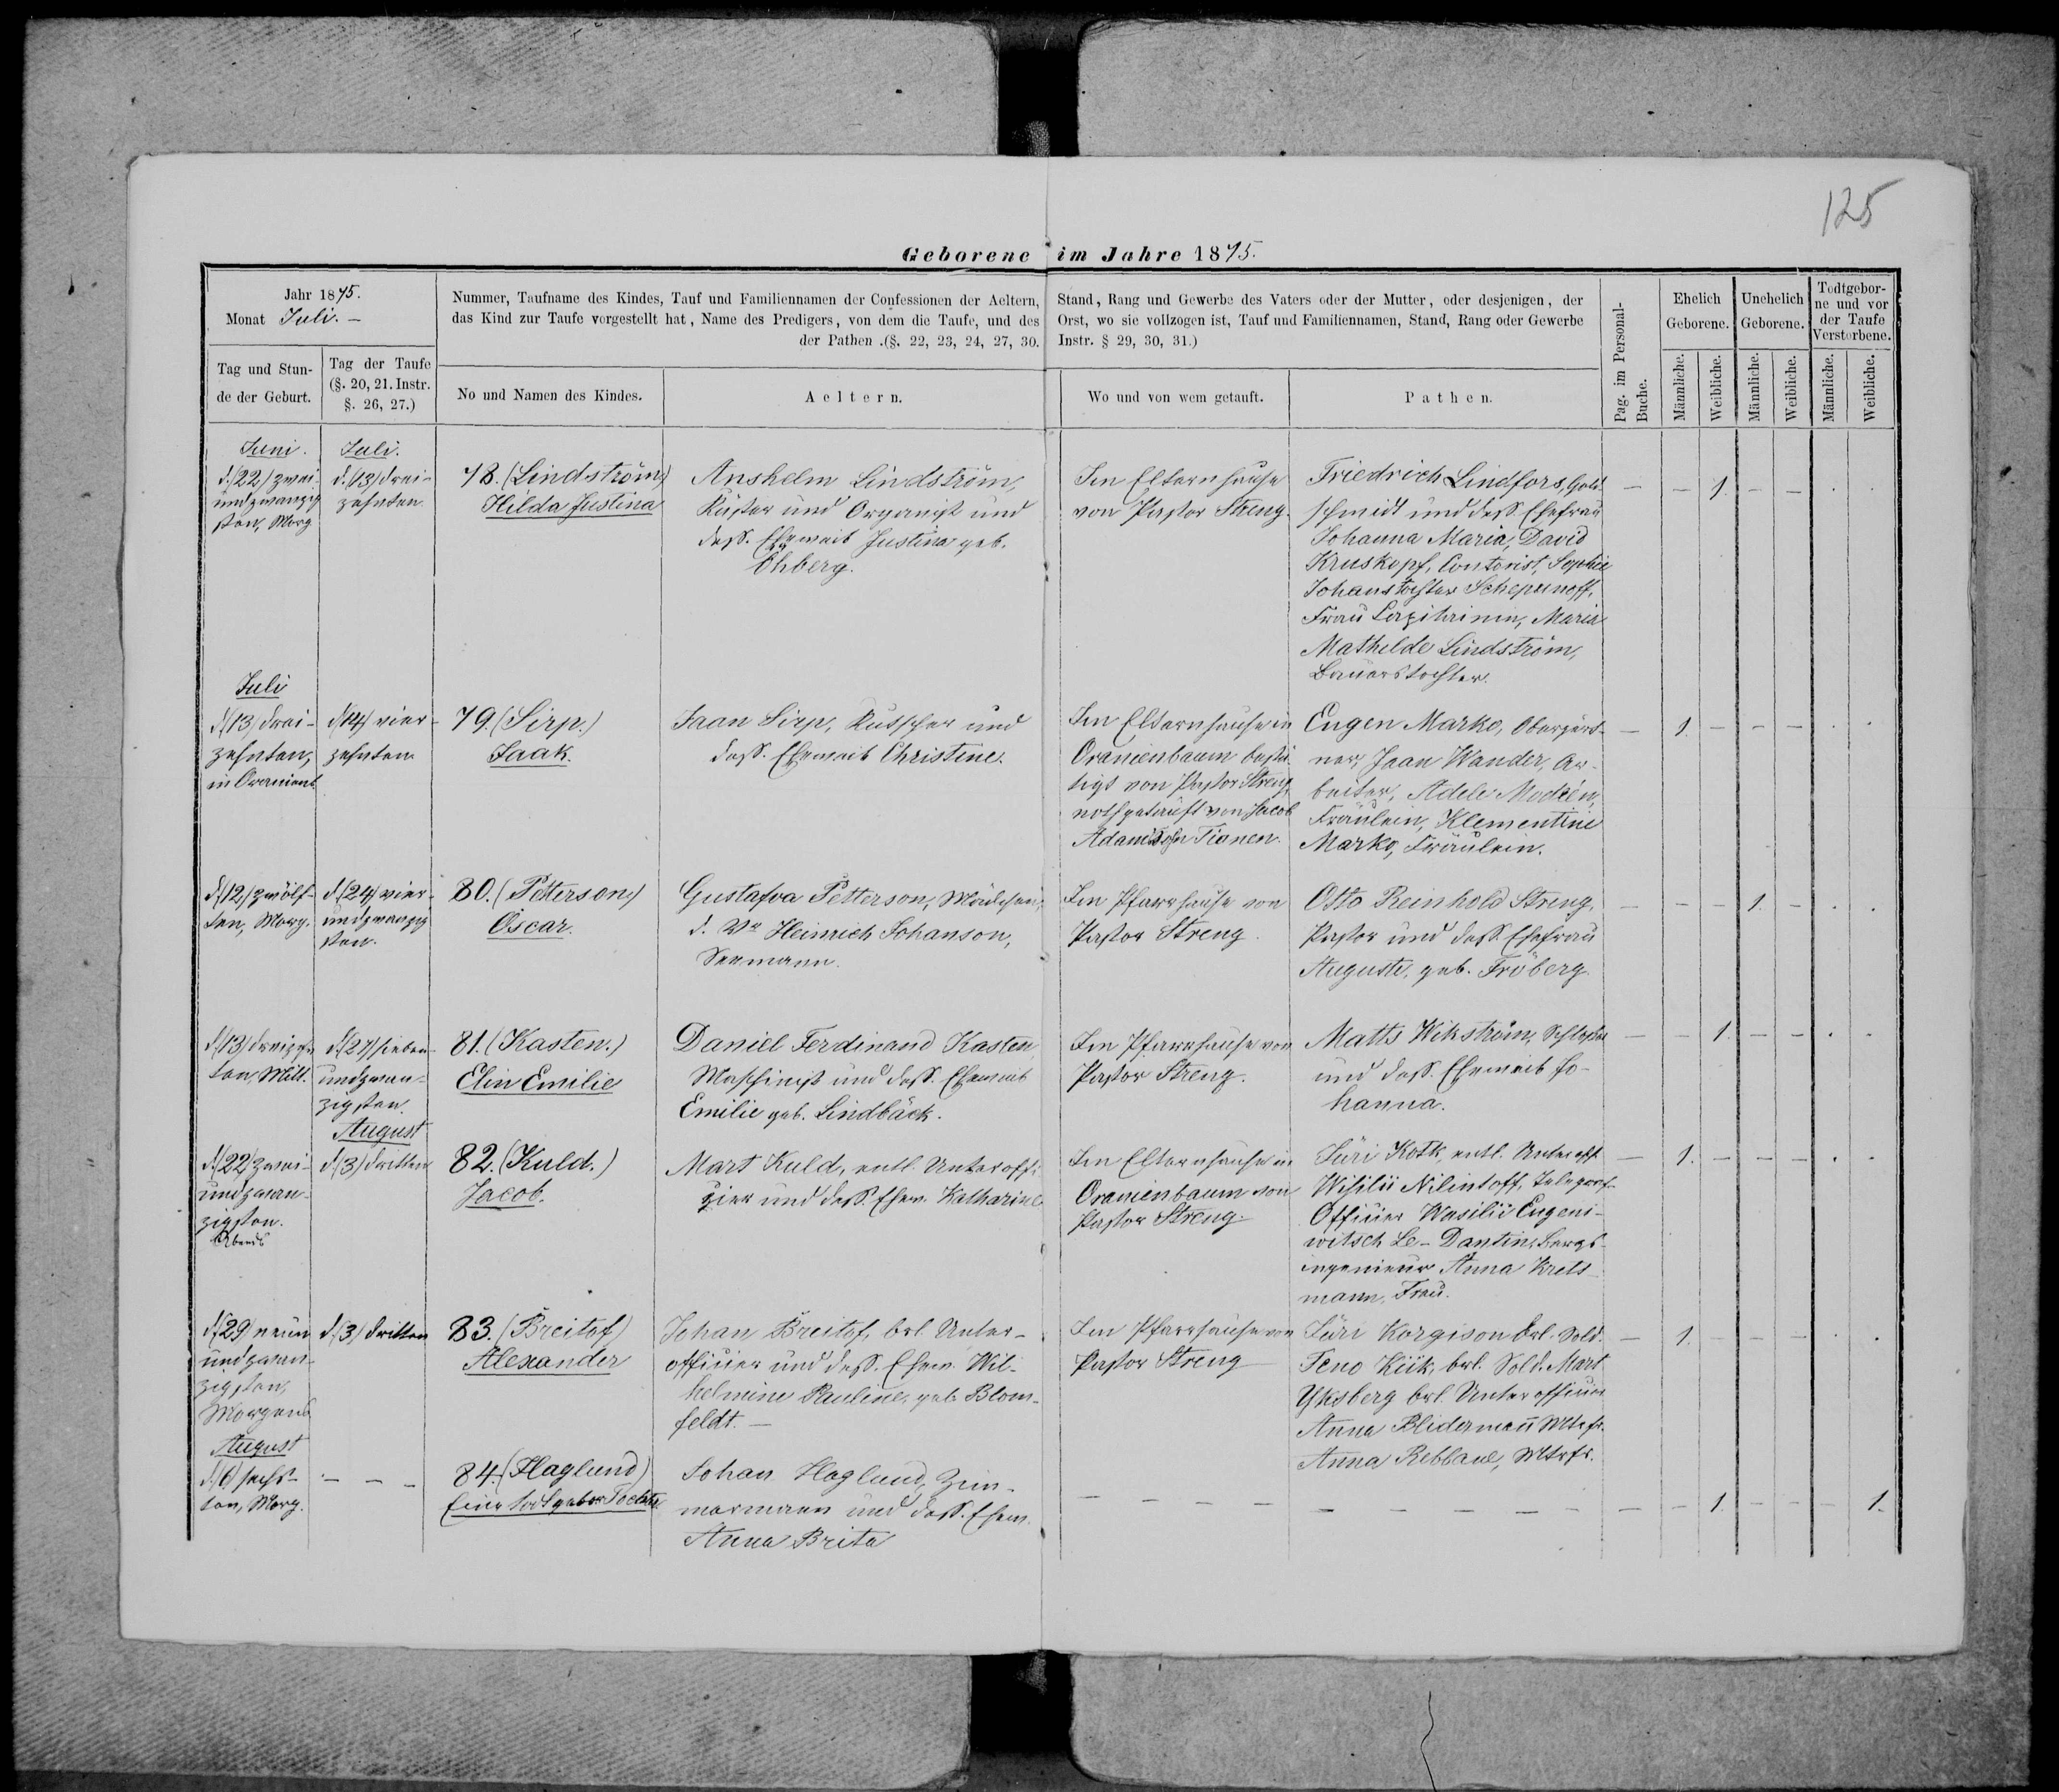 125
Geborene im Jahre 1875.
Jahr 1875.
Monat Juli. –
Nummer, Taufname des Kindes, Tauf und Familiennamen der Confessionen der Aeltern,
das Kind zur Taufe vorgestellt hat, Name des Predigers, von dem die Taufe, und des
der Pathen .(§. 22, 23, 24, 27, 30.
Stand, Rang und Gewerbe des Vaters oder der Mutter, oder desjenigen, der
Orst, wo sie vollzogen ist, Tauf und Familiennamen, Stand, Rang oder Gewerbe
Instr. § 29, 30, 31.)
Pag. im Personal-
Buche.
Ehelich
Geborene.
Unehelich
Geborene.
Todtgebor-
ne und vor
der Taufe
Verstorbene.
Tag und Stun-
de der Geburt.
Tag der Taufe
(§. 20, 21. Instr.
§. 26, 27.)
No und Namen des Kindes.
Aeltern.
Wo und von wem getauft.
Pathen.
Männliche.
Weibliche.
Männliche.
Weibliche.
Männliche.
Weibliche.
Juni.
d. (22) zwei-
undzwanzig
sten, Morg
Juli.
d. (13) drei-
zehnten
78. (Lindström)
Hilda Justina
Anshelm Lindström,
Küster und Organist und
dess. Eheweib Justina geb.
Öhberg.
Im Elternhause
von Pastor Streng.
Friedrich Lindfors, Gold-
schmidt und dess. Ehefrau
Johanna Maria, David
Kruskopf, Contorist, Sophie
Johanstochter Schepunoff,
Frau Capitainin, Maria
Mathilde Lindström,
Bauerstochter.
– – 1. – – . .
Juli
d. (13) drei-
zehnten,
in Oranienb
d. (14) vier-
zehnten
79. (Sirp.)
Jaak.
Jaan Sirp, Kutscher und
dess. Eheweib Christine.
Im Elternhause in
Oranienbaum bestä-
tigt von Pastor Streng,
nothgetauft von Jacob
Adamsohn Tianen.
Eugen Marko, Obergärt-
ner, Jaan Wander, Ar-
beiter, Adele
Fräulein, Klementine
Marko, Fräulein.
– 1. – – – . .
d. (12) zwölf-
ten, Morg.
d. (24) vier-
undzwanzig
sten.
80. (Petterson)
Oscar.
Gustafva Petterson, Mädchen,
d. Vr Heinrich Johanson,
Seemann.
Im Pfarrhause von
Pastor Streng.
Otto Reinhold Streng,
Pastor und dess. Ehefrau
Auguste, geb. Fröberg.
– – – 1. – . .
d. (13) dreizehn
ten, Mitt.
d. (27) sieben-
undzwan-
zigsten.
81. (Kasten.)
Elin Emilie
Daniel Ferdinand Kasten,
Maschinist und dess. Eheweib
Emilie geb. Lindbäck.
Im Pfarrhause von
Pastor Streng.
Matts Wikström, Schlosser
und dess. Eheweib Jo-
hanna.
– – 1. – – . .
d. (22) zwei-
undzwan-
zigsten.
Abends
August
d. (3) dritten
82. (Kuld.)
Jacob.
Mart Kuld, entl. Unteroffi-
zier und dess. Ehew. Katharine.
Im Elternhause in
Oranienbaum von
Pastor Streng.
Jüri Kotk, entl. Unteroff
Officier Wasilii Eugeni-
witsch Le-Dantin, Bergs-
ingenieur Anna Krets-
mann, Frau.
– 1. – – – . .
d. (29) neun
undzwan-
zigsten,
Morgens
d. (3) dritten
83. (Breitof)
Alexander
Johan Breitof, brl. Unter-
officier und dess. Ehew. Wil-
helmine Pauline, geb. Blom-
feldt. –
Im Pfarrhause von
Pastor Streng
Jüri Korgison brl. Sold.
Teno Kiik, brl. Sold. Mart
Yksberg brl. Unterofficier
Anna Blidermañ Mtrfr.
Anna Rebbane, Mtrfr.
– 1. – – – . .
August
d. (6) sechs-
ten, Morg.
– – –
84. (Haglund)
Eine todtgebor Tochter
Johan Haglund, Zim-
mermann und dess. Ehew.
Anna Brita
– – – – – – – – – – – – 1. – – – 1.